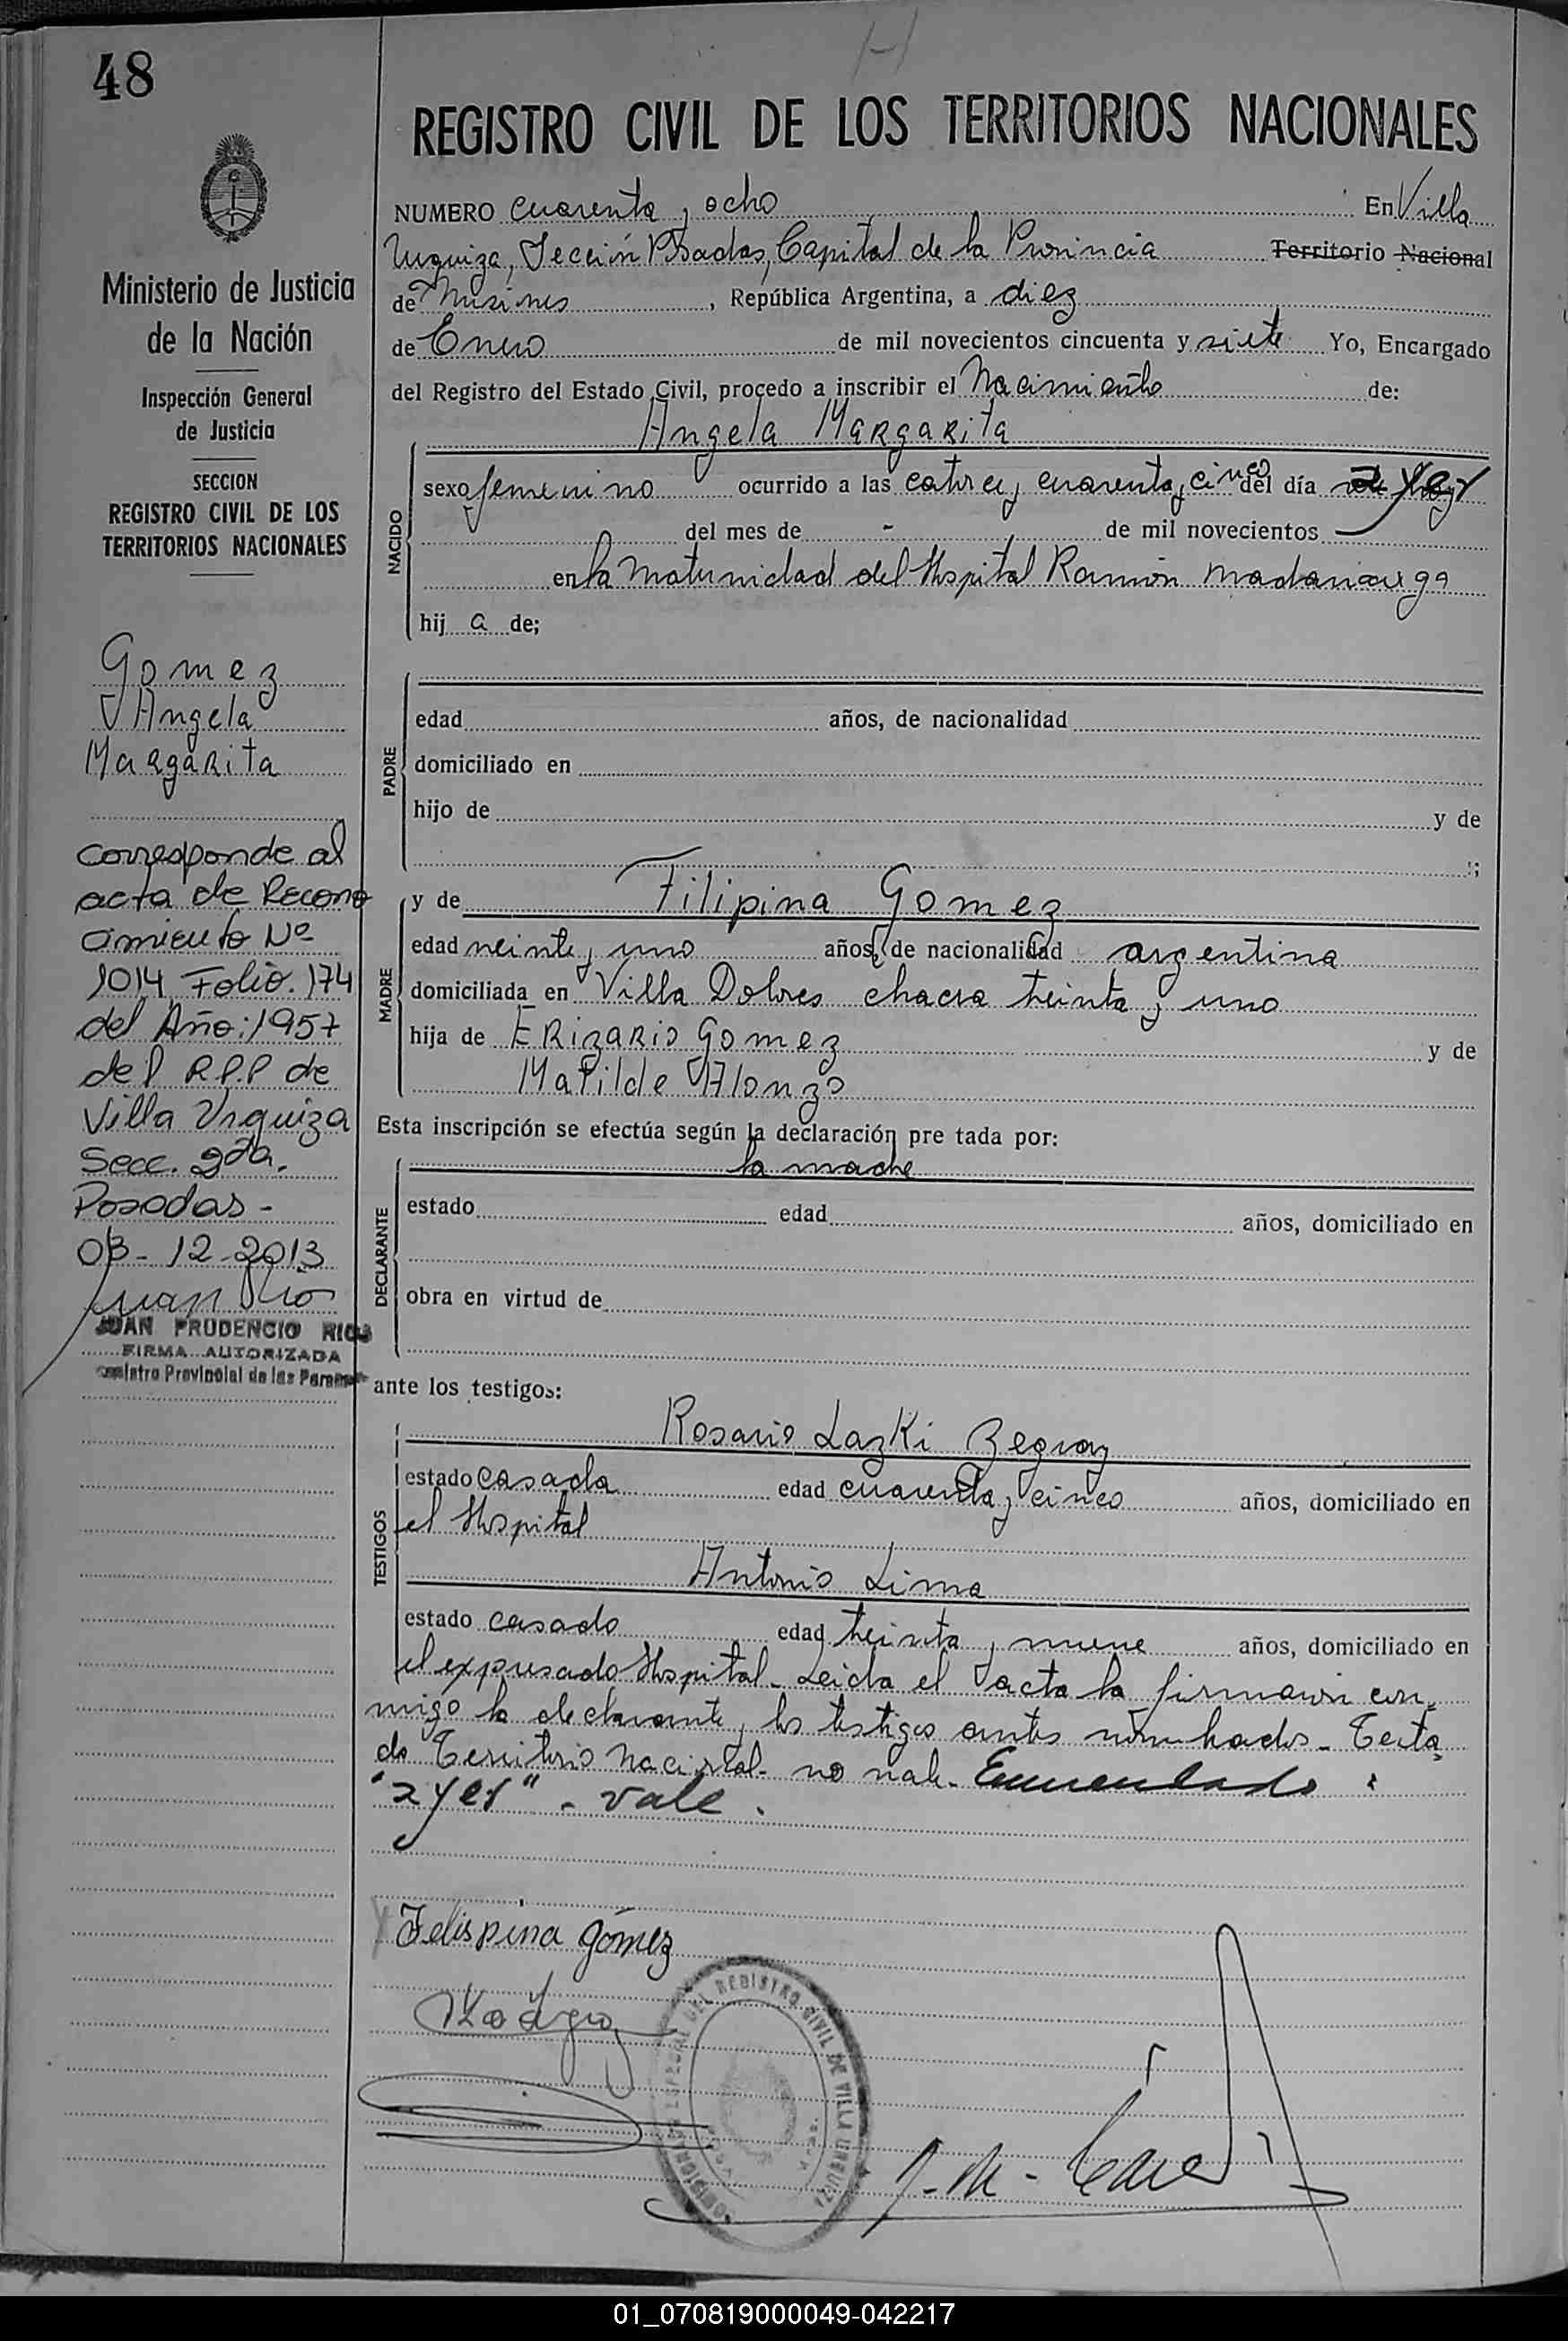 48
REGISTRO CIVIL DE LOS TERRITORIOS NACIONALES
Ministerio de Justicia
de la Nación
Inspección General
de Justicia
SECCION
REGISTRO CIVIL DE LOS
TERRITORIOS NACIONALES
Gomez
Angela
Margarita
Corresponde al
acta de Recono
cimiento Nº
1014 Folio. 174
del Año: 1957
del R.P.P de
Villa Urquiza
Secc. 2da.
Posadas -
03 - 12 - 2013
JUAN PRUDENCIO RIOS
FIRMA AUTORIZADA
Registro Provincial de las Personas
NUMERO cuarenta y ocho En Villa
Urquiza, Sección Posadas, Capital de la Provincia Territorio Nacional
de Misiones, República Argentina, a diez
de Enero de mil novecientos cincuenta y siete Yo, Encargado
del Registro del Estado Civil, procedo a inscribir el Nacimiento de:
Angela Margarita
NACIDO
sexo femenino ocurrido a las catorce y cuarenta y cinco del día ayer
del mes de - de mil novecientos
en la Maternidad del Hospital Ramón Madariaga
hij a de;
PADRE
edad años, de nacionalidad
domiciliado en
hijo de y de
;
MADRE
y de Filipina Gomez
edad veinte y uno años, de nacionalidad argentina
domiciliada en Villa Dolores chacra treinta y uno
hija de Erizario Gomez y de
Matilde Alonzo
Esta inscripción se efectúa según la declaración pre tada por:
la madre
DECLARANTE
estado edad años, domiciliado en
obra en virtud de
ante los testigos:
TESTIGOS
Rosario Lazki
estado casada edad cuarenta y cinco años, domiciliado en
el Hospital
Antonio Lima
estado casado edad treinta y nueve años, domiciliado en
el expresado Hospital - Leida el acta la firmaron con
migo la declarante y los testigos antes nombrados - Testa
do Territorio Nacional - no vale - Enmendado :
"ayer" - vale.
Felispina gómez
DEL REGISTRO CIVIL DE VILLA URQUIZA
01_070819000049-042217